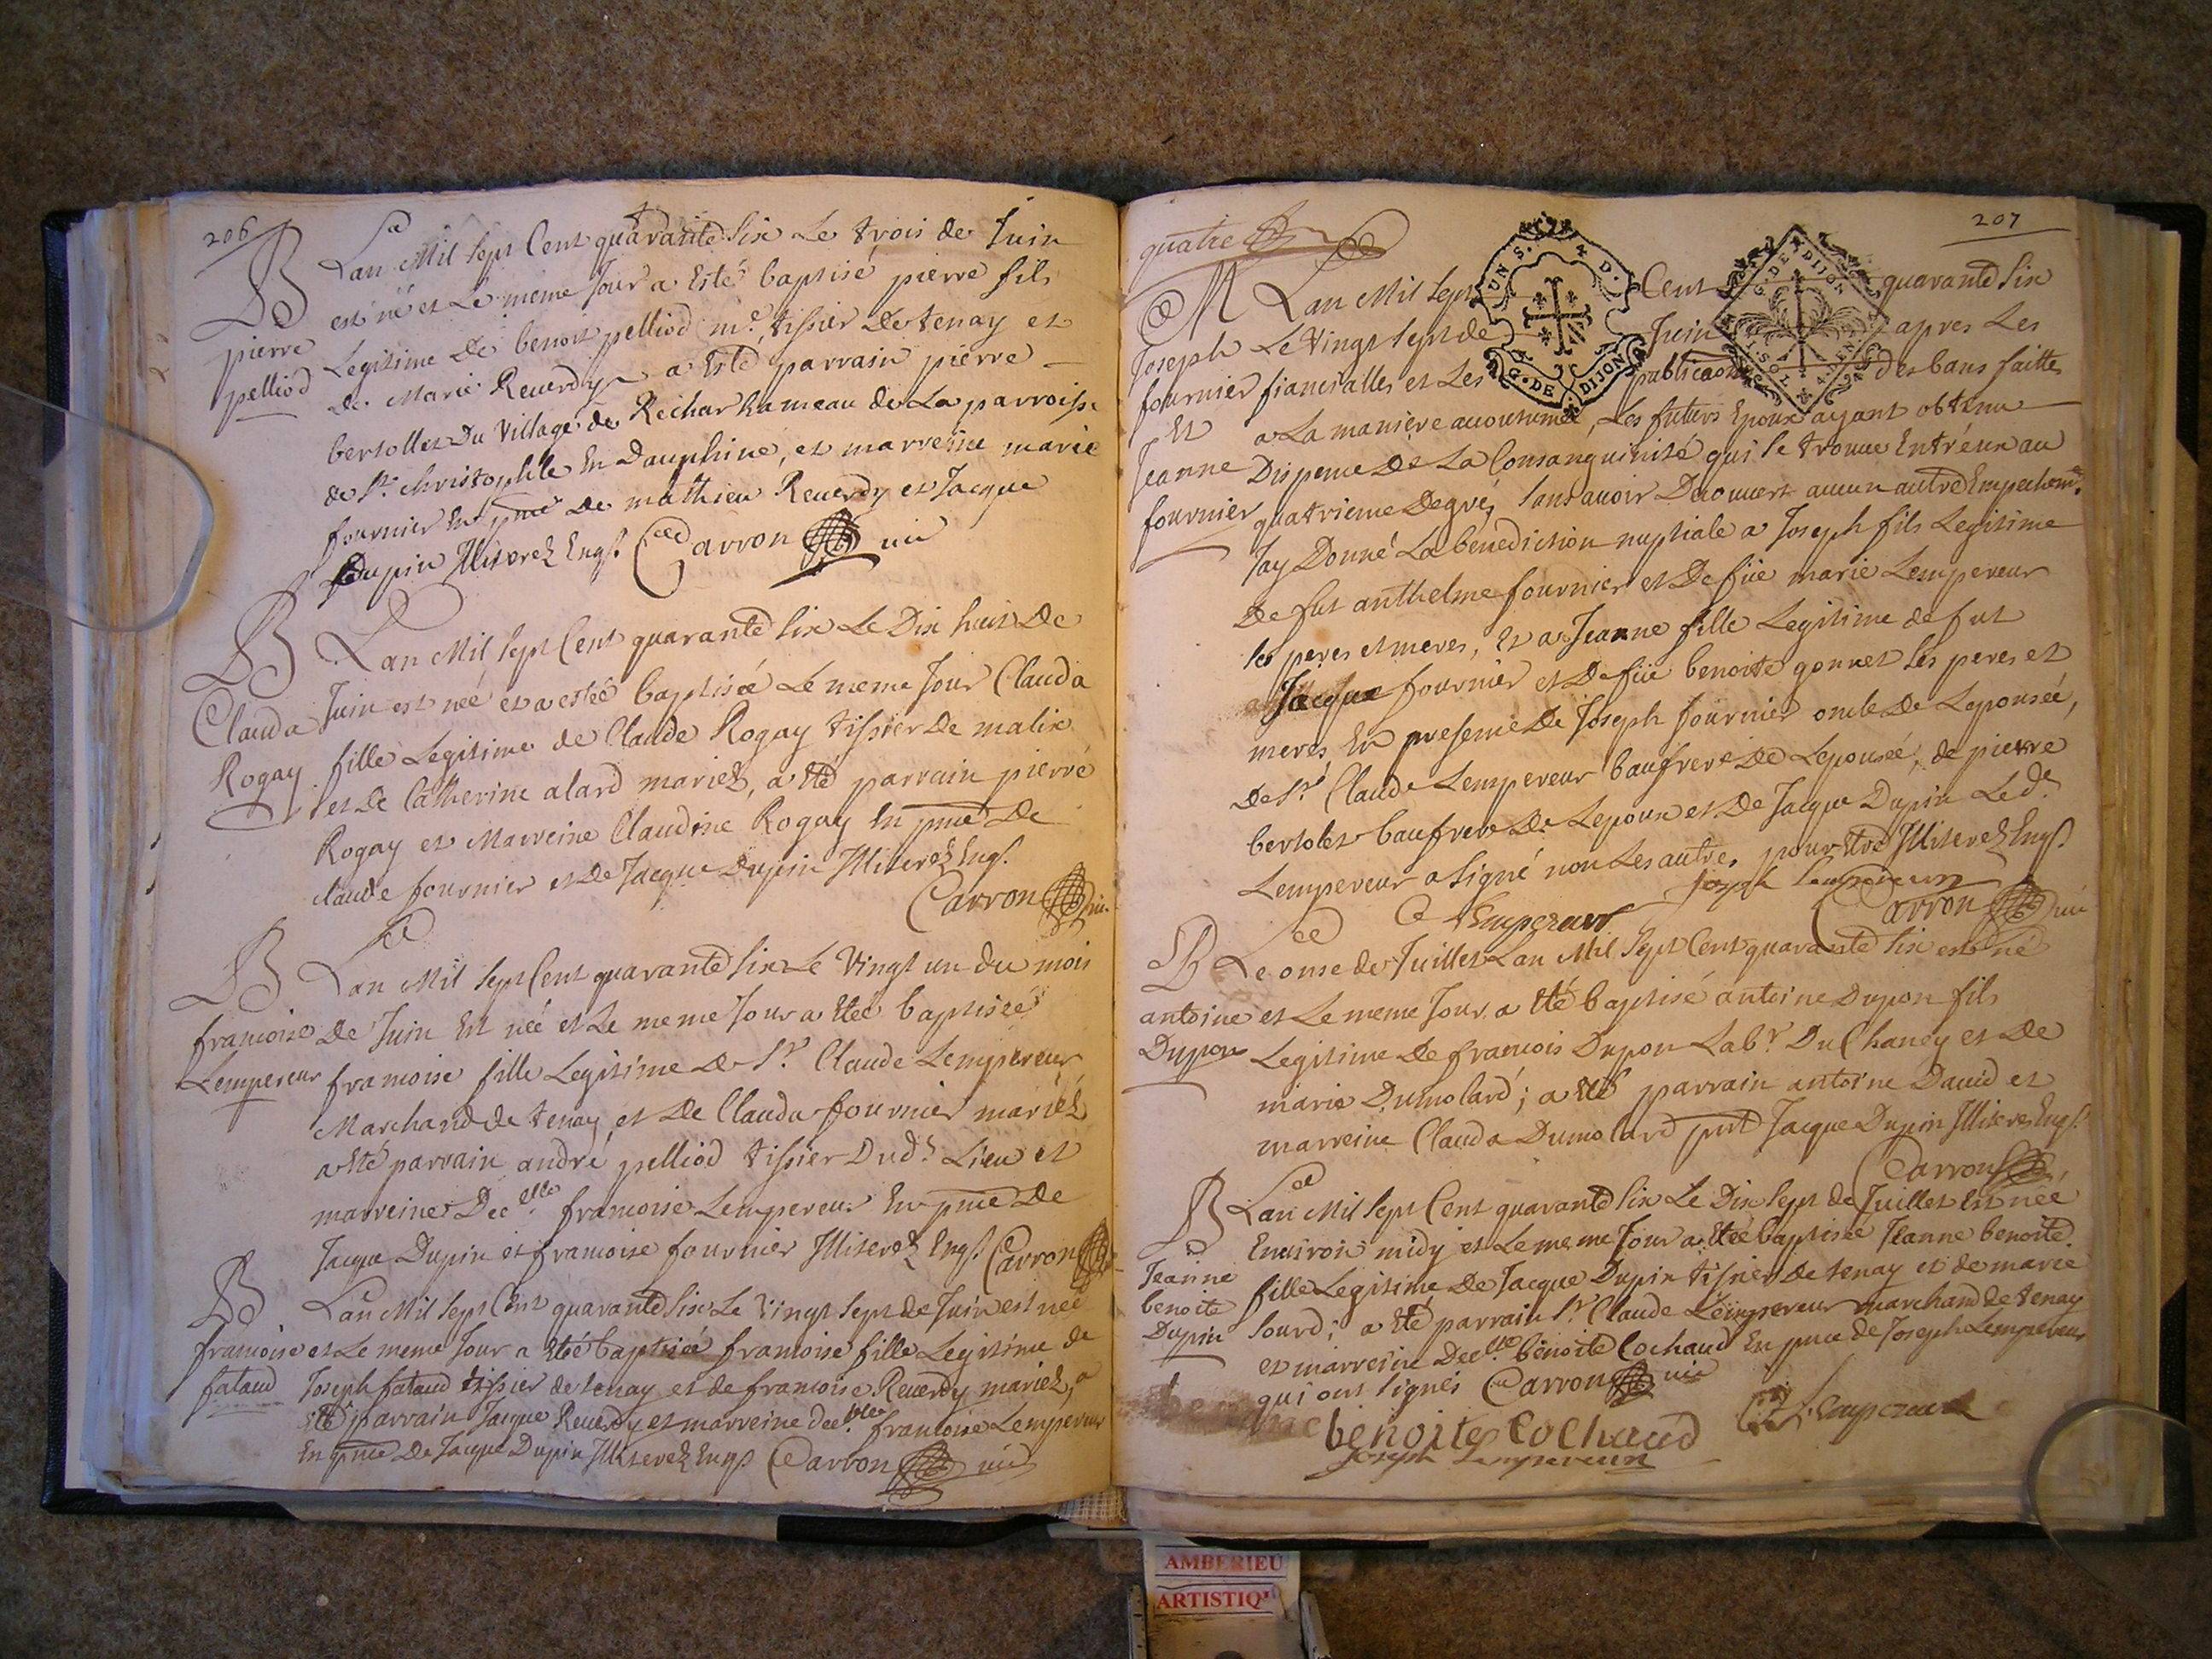 206
B
Lan Mil Sept Cent quarante Six Le trois de Juin
est né et Le meme Jour a Esté baptisé pierre fils
pierre
pelliod
Legitime De benoit pelliod me. tissier De tenay et
de Marie Reuerdy a Esté parrain pierre
bertollet Du Village de Rechar hameau de La parroisse
de St. Christophle En Dauphiné, et marreine marie
fournier En pnce De mathieu Reuerdy et Jacque
Dupin Illiterez Engs. Carron uic
B
Lan Mil Sept Cent quarante Six Le Dix huit De
Clauda
Rogay
Juin est née et a estée baptisée Le meme Jour Clauda
fille Legitime de Claude Rogay tissier De malix
et De Catherine alard mariez, a été parrain pierre
Rogay et Marreine Claudine Rogay En pnce De
claude fournier et De Jacque Dupin Illiterez Engs.
Carron uic.
B
Lan Mil Sept Cent quarante Six Le Vingt un du mois
francoise
Lempereur
De Juin Est née et Le meme Jour a Etée baptisée
francoise fille Legitime De Sr. Claude Lempereur
Marchand de tenay et De Clauda fournier mariez
a Eté parrain andré pelliod tissier Dudt. Lieu et
marreine Deelle. francoise Lempereur En pnce De
Jacque Dupin et francoise fournier Illiterez Engs. Carron
B
Lan Mil Sept Cent quarante Six Le Vingt Sept de Juin est née
francoise
fataud
et Le meme Jour a Etée baptisée francoise fille Legitime de
Joseph fataud tissier de tenay et de francoise Reuerdy mariez, a
Eté parrain Jacque Reuerdy et marreine deelle. francoise Lempereur
En pnce De Jacque Dupin Illiterez Engs Carron uic
207
quatre
UN S. 4 D.
G. DE DIJON
G. DE DIJON
M
Lan Mil Sept Cent quarante Six
Joseph
fournier
Et
Jeanne
fournier
Le Vingt Sept de Juin apres Les
fiancialles et Les publications des bans faittes
a La maniere accoutumée, Les futurs Epoux ayant obtenu
Dispence De La Consanguinité qui Se trouue Entréux au
quatrieme Degré, Sans auoir Decouuert aucun autre Empechemt.
Jay Donné La benediction nuptiale a Joseph fils Legitime
De fut anthelme fournier et De füe marie Lempereur
Ses peres et meres, Et a Jeanne fille Legitime de fut
Jacque fournier et De füe benoite gonnet Ses peres et
meres, En presence De Joseph fournier oncle De Lepousée,
De Sr. Claude Lempereur baufrere De Lepousée, de pierre
bertolet baufrere De Lepoux et De Jacque Dupin Ledt.
Lempereur a Signé non Les autres pour Etre Illiterez Engs
Joseph Lempereur
C Lempereur Carron uic
B
Le onse de Juillet Lan Mil Sept Cent quarante Six est né
antoine
Dupon
et Le meme Jour a Eté baptisé antoine Dupon fils
Legitime De francois Dupon Labr. Du Chaney et De
marie Dumolard; a Eté parrain antoine Dauid et
marreine Clauda Dumolard pnt Jacque Dupin Illiterez Engs.
Carron
B
Lan Mil Sept Cent quarante Six Le Dix Sept de Juillet Est née
Jeanne
benoite
Dupin
Enuiron midy et Le meme Jour a Etée baptisée Jeanne benoite
fille Legitime De Jacque Dupin tissier De tenay et de marie
Sourd; a Eté parrain Sr. Claude Lempereur marchand de tenay
et marreine Deelle. benoite Cochaud En pnce de Joseph Lempereur
qui ont Signés Carron uic
benoite Cochaud C Lempereur
Joseph Lempereur
AMBERIEU
ARTISTIQU